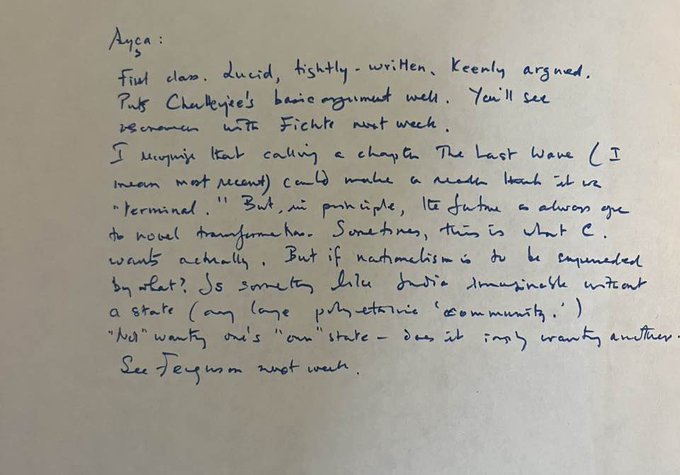 Ayça:
First class. Lucid, tightly-written, keenly argued.
Puts Chatterjee's basic argument well. You'll see
resonances with Fichte next week.
I recognize that calling a chapter The Last Wave (I
mean most recent) could make a reader think it is
"terminal." But, in principle, the future is always open
to novel transformation. Sometimes, this is what C.
wants actually. But if nationalism is to be superseded
by what? Is something like India imaginable without
a state (any large polyethnic 'community.')
"Not" wanting one's "own" state - does it imply wanting another.
See Ferguson next week.